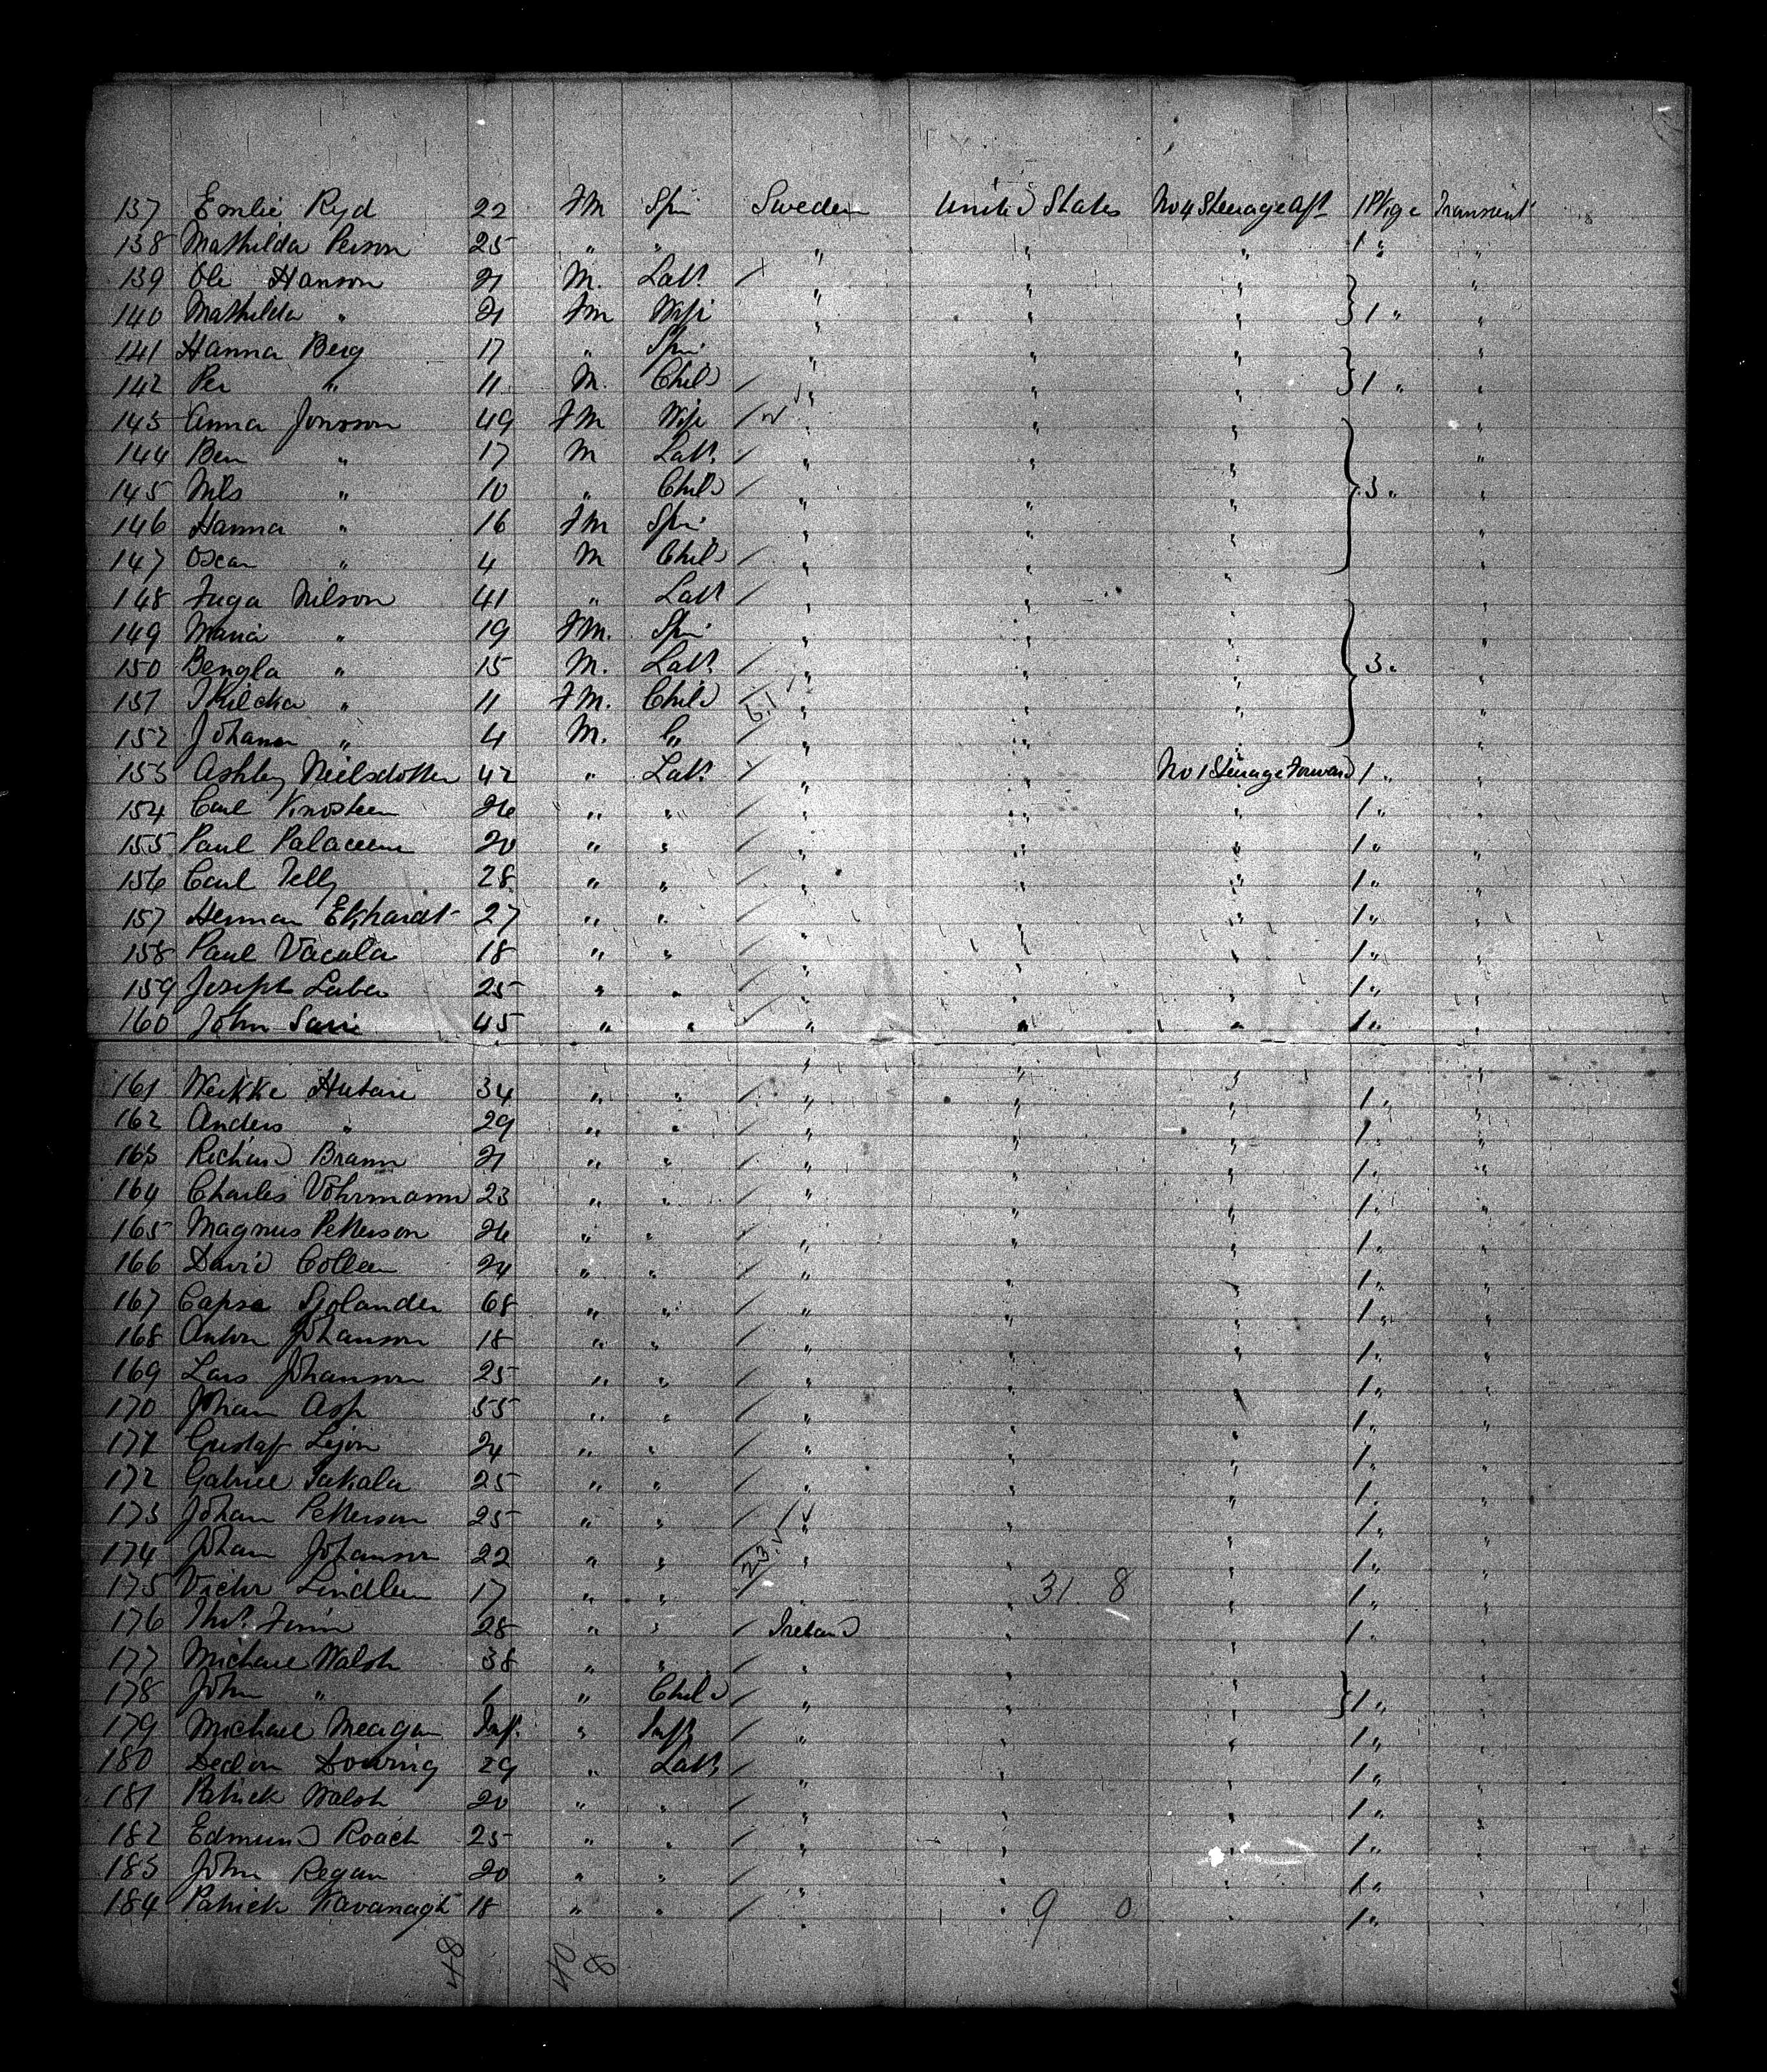 137 Emlie Ryd 22 FM Spin Sweden United States No 4 Steerage Aft 1 P'kge Transient
138 Mathilda Person 25 " " " " " 1 " "
139 Ole Hanson 21 M. Labr " " " "
140 Mathilda " 21 FM Wife " " " } 1 " "
141 Hanna Berg 17 " Spin " " " "
142 Per " 11 M. Child " " " } 1 " "
143 Anna Jonsson 49 FM Wife " " " "
144 Ben " 17 M Labr " " " "
145 Nils " 10 " Child " " " } 3 " "
146 Hanna " 16 FM Spin " " " "
147 Oscar " 4 M Child " " " "
148 Nilson 41 " Labr " " " "
149 Maria " 19 FM. Spin " " " "
150 Bengla " 15 M. Labr " " " } 3 " "
151 " 11 FM. Child 6.1 " " " "
152 Johann " 4 M. " " " " "
153 Neilsdotter 42 " Labr " " No 1 Steerage Forward 1 " "
154 Carl 26 " " " " " 1 " "
155 Paul 20 " " " " " 1 " "
156 Carl Telly 28 " " " " " 1 " "
157 Herman Ekhardt 27 " " " " " 1 " "
158 Paul Vacula 18 " " " " " 1 " "
159 Joseph Laber 25 " " " " " 1 " "
160 John Sarri 45 " " " " " 1 " "
161 34 " " " " " 1 " "
162 Anders " 29 " " " " " 1 " "
163 Richard Brann 21 " " " " " 1 " "
164 Charles Vohrmann 23 " " " " " 1 " "
165 Magnus Petterson 26 " " " " " 1 " "
166 David Collen 24 " " " " " 1 " "
167 Sjolander 68 " " " " " 1 " "
168 Anton Johanson 18 " " " " " 1 " "
169 Lars Johanson 25 " " " " " 1 " "
170 Johan Asp 55 " " " " " 1 " "
171 Gustaf Lejon 24 " " " " " 1 " "
172 Gabriel Takala 25 " " " " " 1 " "
173 Johan Petterson 25 " " " " " 1 " "
174 Johan Johanson 22 " " 23 " " " 1 " "
175 Victor Lindlen 17 " " " 31 8 " 1 " "
176 Thos. 28 " " Ireland " " 1 " "
177 Michael Walsh 38 " " " " " "
178 John " 1 " Child " " " } 1 " "
179 Michael Meagan Inft. " Inft " " " 1 " "
180 Declan Dowing 29 " Labr " " " 1 " "
181 Patrick Walsh 20 " " " " " 1 " "
182 Edmund Roach 25 " " " " " 1 " "
183 John Regan 20 " " " " " 1 " "
184 Patrick Kavanagh 18 " " " " 9 0 " 1 " "
48 40 8